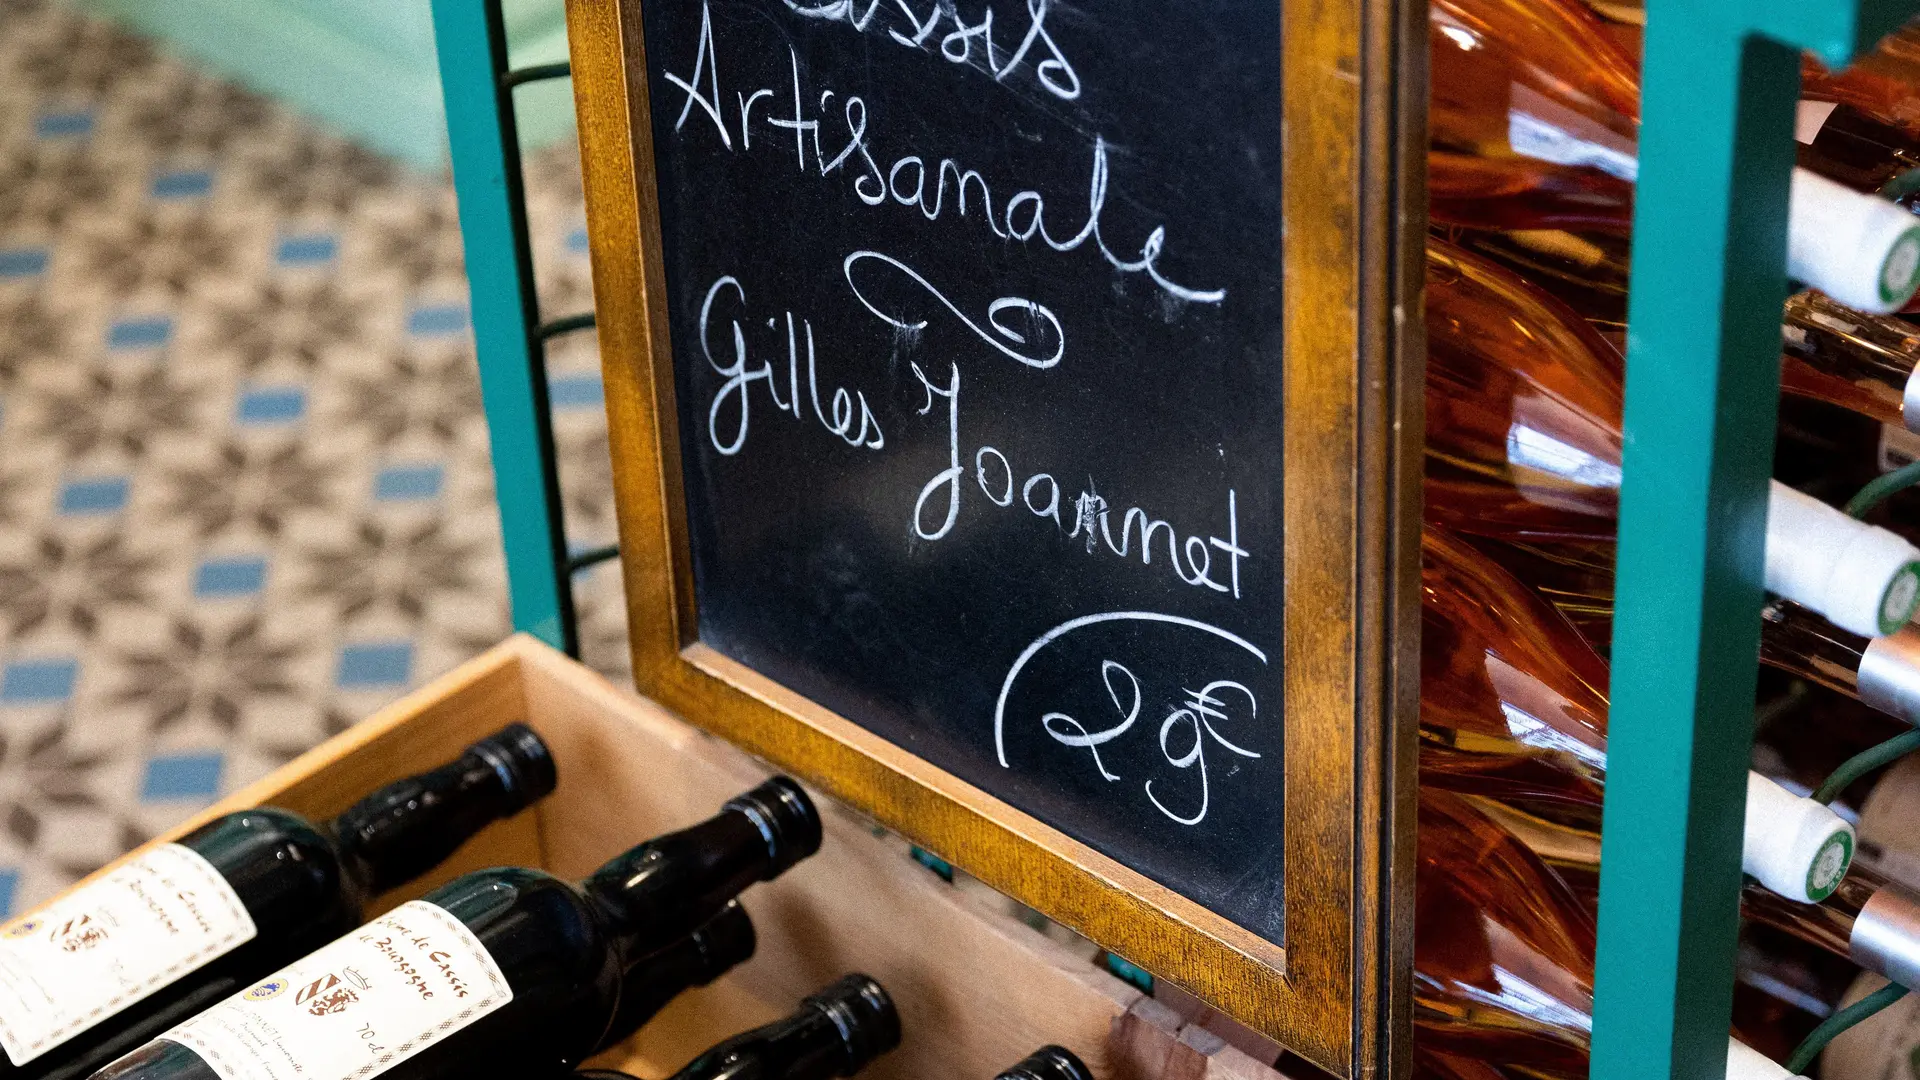 Cassis
Artisanale
Gilles Joannet
29€
Crème de Cassis
de Bourgogne
Crème de Cassis
de Bourgogne
70 cl